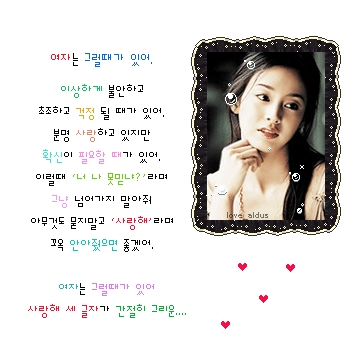 여자는 그럴때가 있어.
이상하게 불안하고
초조하고 걱정 될 때가 있어.
분명 사랑하고 있지만
확신이 필요할 때가 있어.
이럴때 '너 나 못믿냐?'라며
그냥 넘어가지 말아줘
아무것도 묻지말고 '사랑해'라며
꼬옥 안아줬으면 좋겠어.
love_aldus
여자는 그럴때가 있어
사랑해 세 글자가 간절히 그리운....